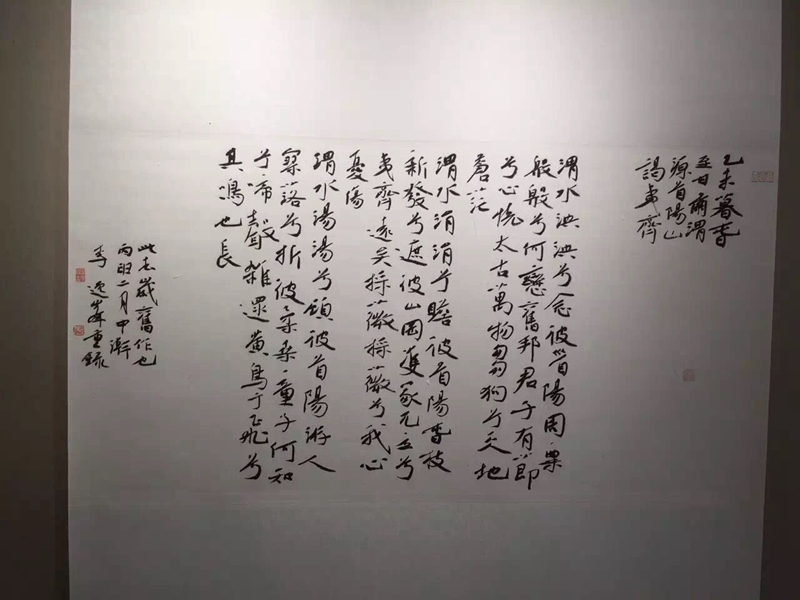 乙未暮春
至甘肅渭
源首陽山
謁夷齊
渭水泱泱兮念彼首陽周粟
般般兮何戀舊邦君子有節
兮心恍太古萬物芻狗兮天地
蒼茫
渭水涓涓兮瞻彼首陽春枝
新發兮遮彼山岡雙冢兀立兮
夷齊遠矣採薇採薇兮我心
憂傷
渭水湯湯兮顧彼首陽游人
寥落兮折彼柔桑童子何知
兮啼聲雜還黃鳥于飛兮
其鳴也長
此去歲舊作也
丙申二月中澣
李逸峰重錄